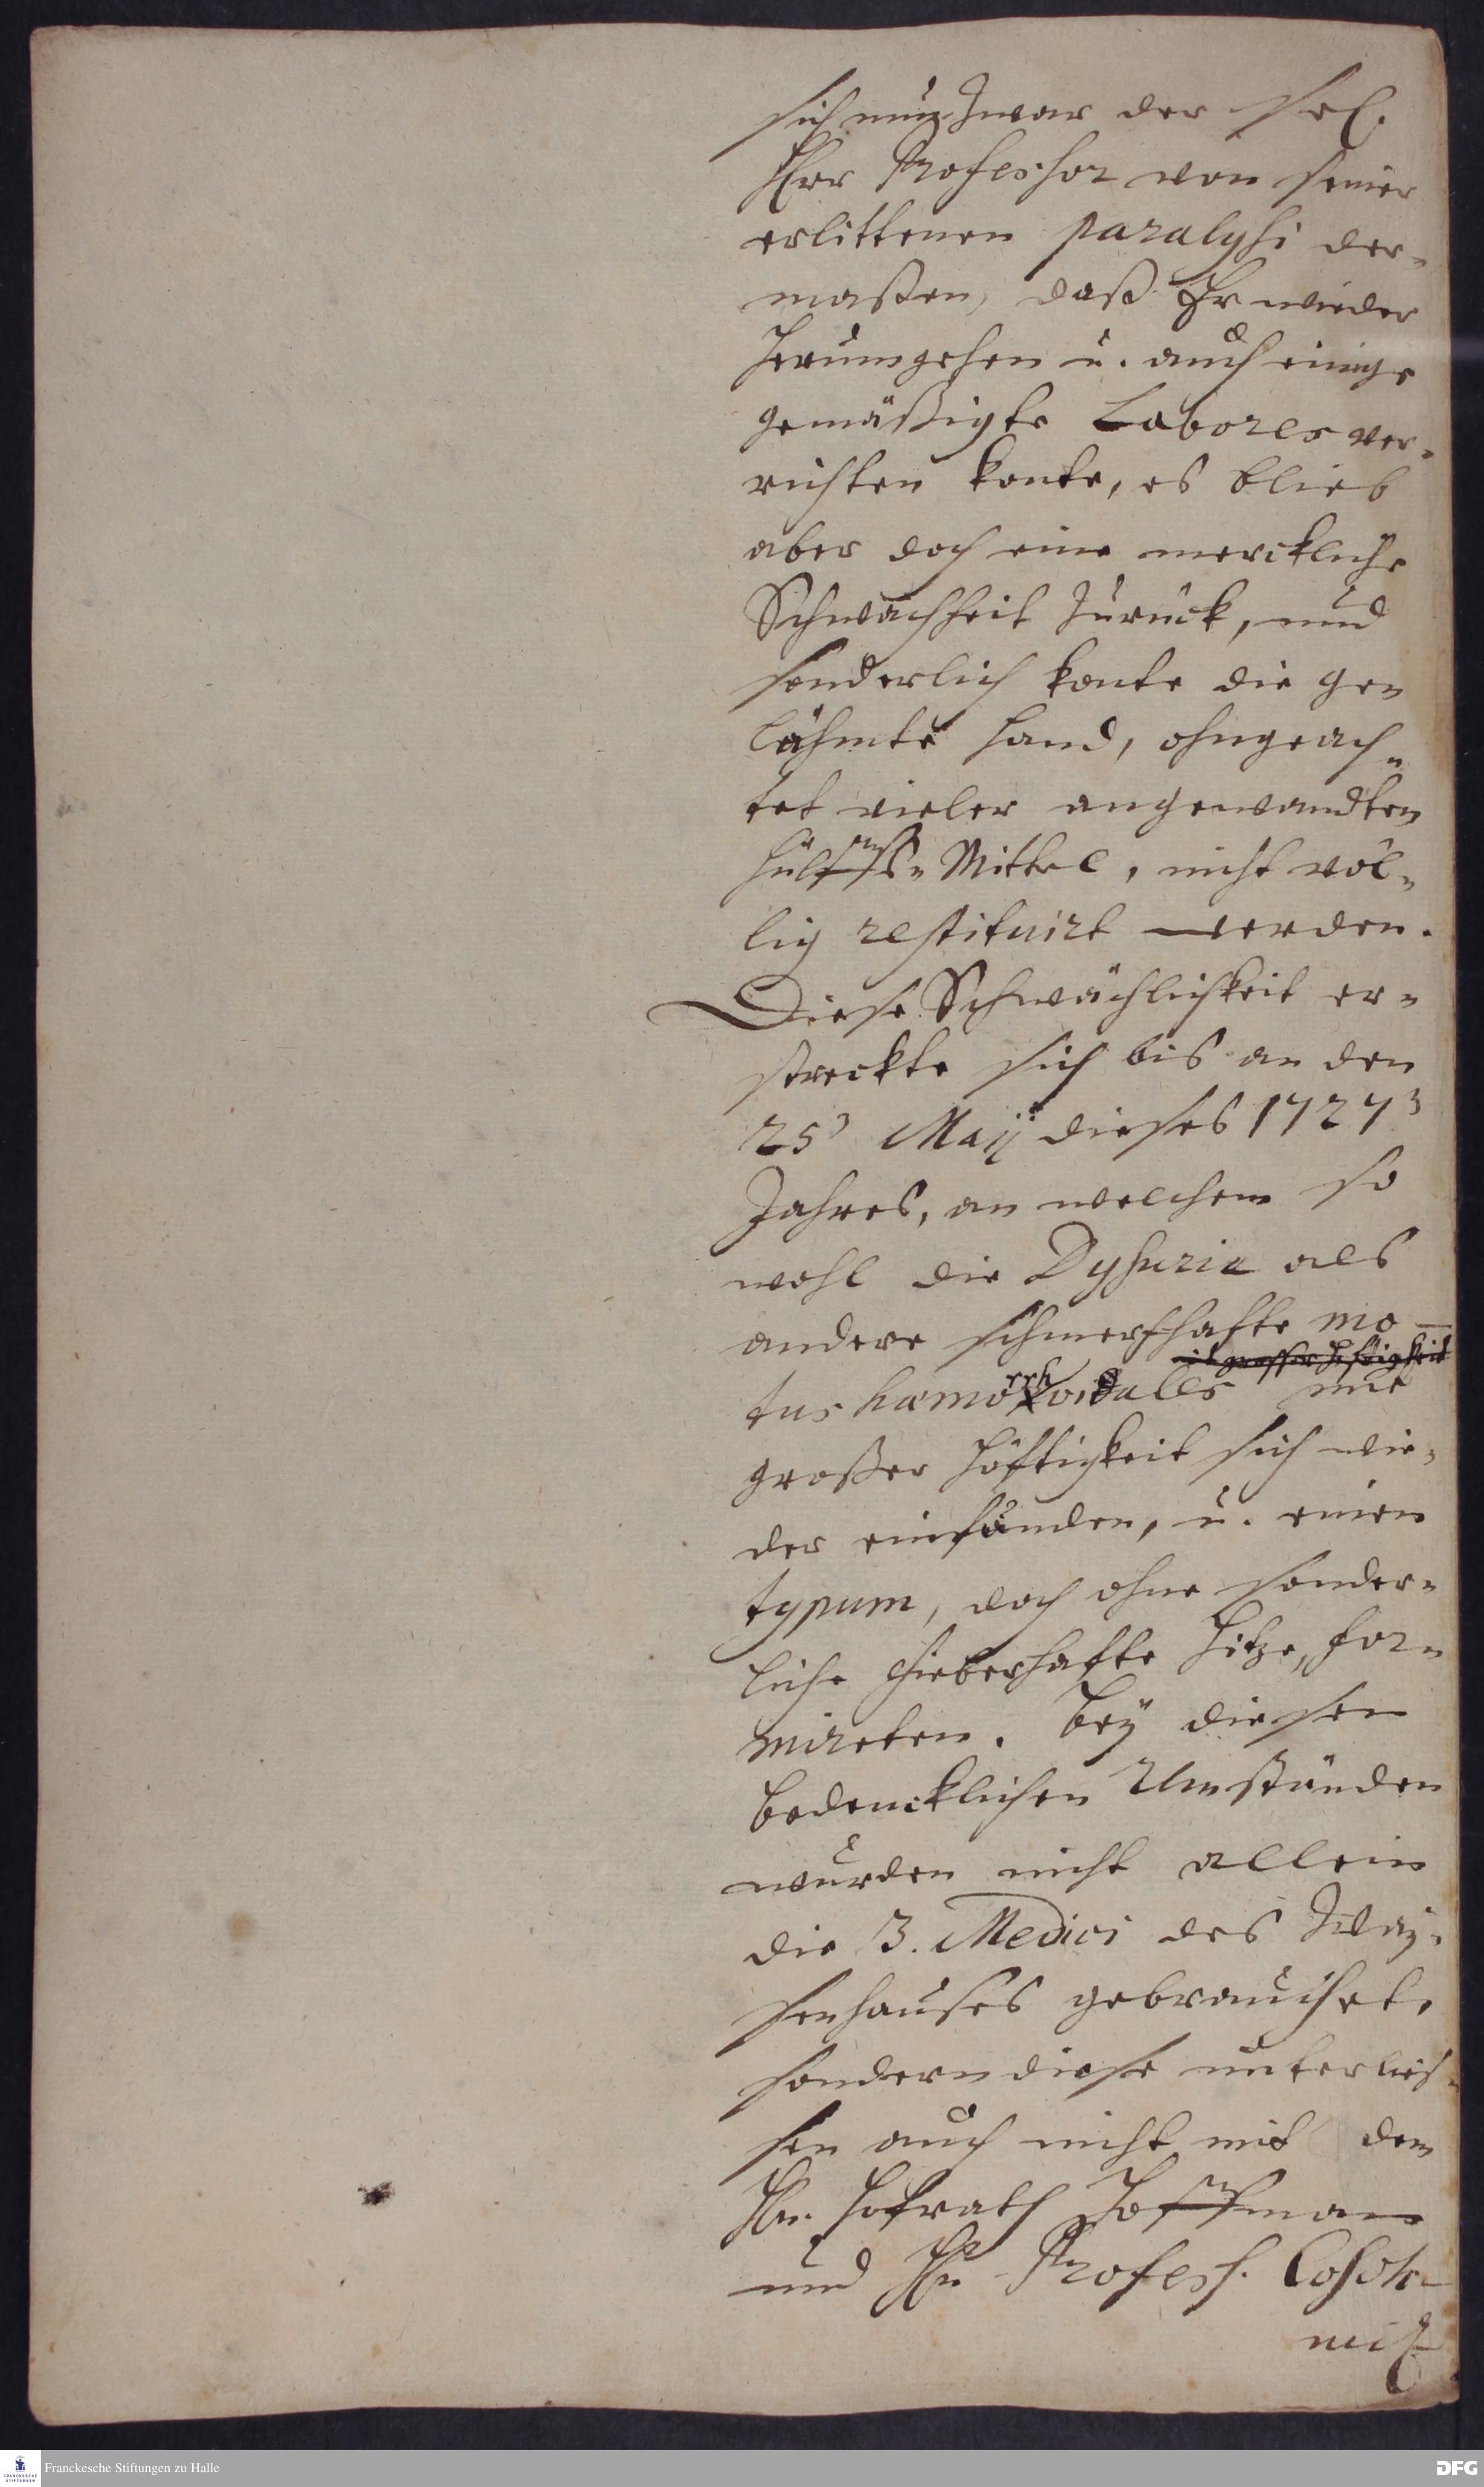 sich nun zwar der Sel.
Herr Professor von seiner
erlittenen paralysi der-
maßen, daß Er wieder
herumgehen u. auch einige
gemäßigte Labores ver-
richten konte, es blieb
aber doch eine merckliche
Schwachheit zurück, und
sonderlich konte die ge-
lähmte Hand, ohngeach-
tet vieler angewandten
Hülffs-Mittel, nicht völ-
lig restituirt werden.
Diese Schwächlichkeit er-
streckte sich bis an den
25 Maij dieses 1727
Jahres, an welchem so
wohl die Dysuria als
andere schmerzhafte mo-
mit grosser Heftigkeit
tus hæmorrhoidales mit
großer Höftigkeit sich wie-
der einfanden, u. einen
typum, doch ohne sonder-
liche fieberhafte Hitze, for-
mireten. Bey diesen
bedencklichen Umständen
wurden nicht allein
die 3. Medici des Way-
senhauses gebrauchet,
sondern diese unterlies-
sen auch nicht mit dem
Hn. Hofrath Hoffman
und Hn Profess. Coschw-
nitz
Franckesche Stiftungen zu Halle
DFG